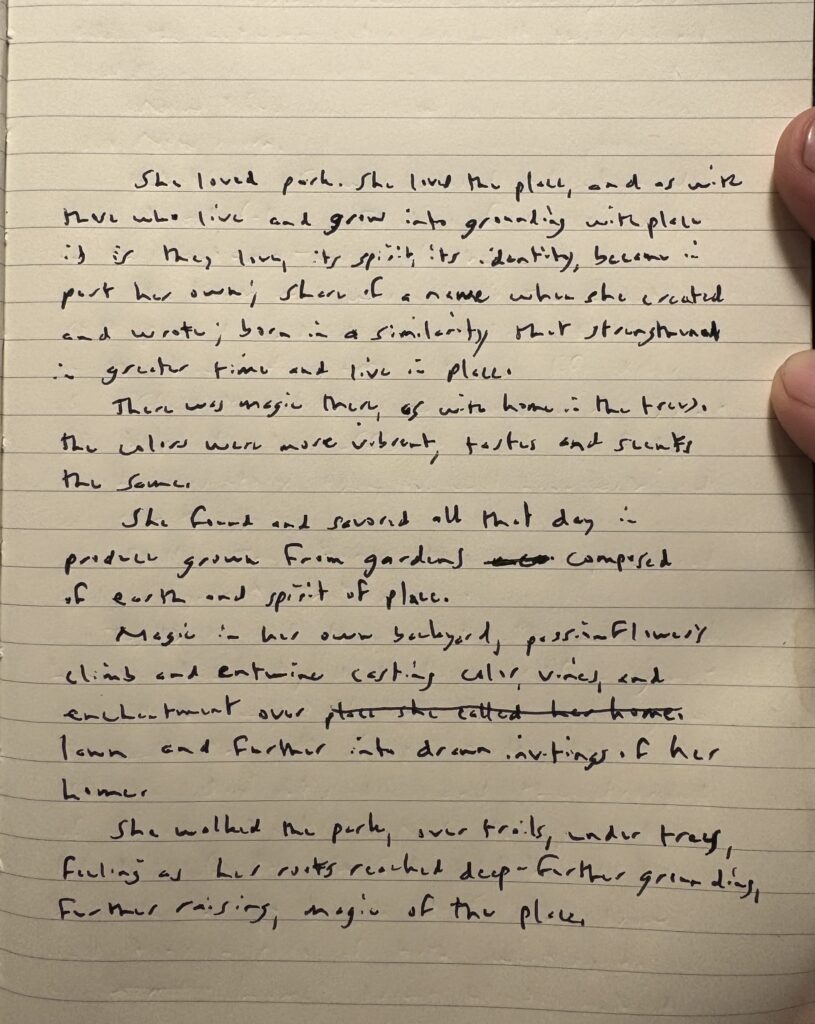 She loved park. She loved the place, and as with
those who live and grow into grounding with place
it is they love, its spirit, its identity, became in
part her own; share of a name when she created
and wrote; born in a similarity that strengthened
in greater time and live in place.
There was magic there, as with home in the trees.
the colors were more vibrant, tastes and scents
the same.
She found and savored all that day in
produce grown from gardens composed
of earth and spirit of place.
Magic in her own backyard, passionflowers
climb and entwine casting color, vines, and
enchantment over place she called her home.
lawn and further into drawn invitings of her
home.
She walked the park, over trails, under trees,
feeling as her roots reached deep-further grounding,
further raising, magic of the place.